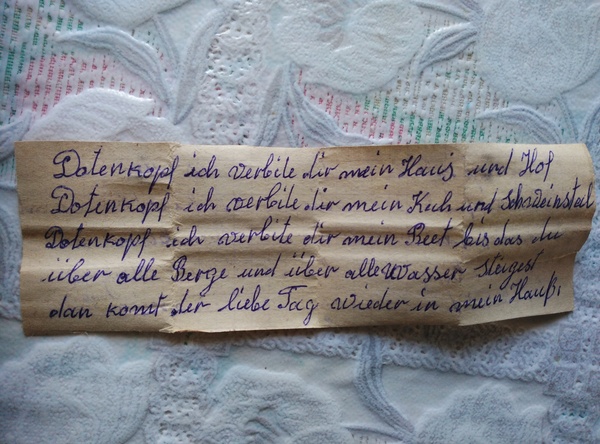 Dotenkopf ich verbite dir mein Haus und Hof
Dotenkopf ich verbite dir mein Kuh und Schweinstal
Dotenkopf ich verbite dir mein Beet bis das du
über alle Berge und über alle Wasser steigest
dan komt der liebe Tag wieder in mein Hauß.